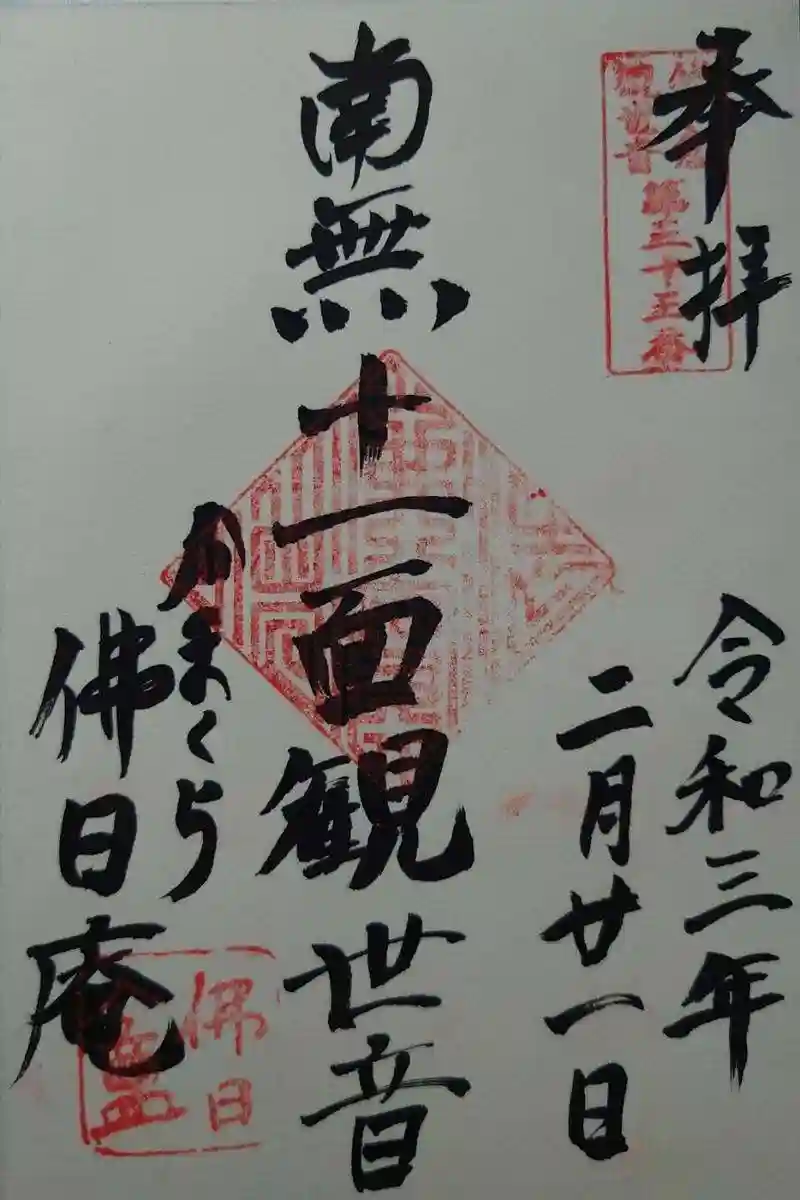 奉拝
鎌倉
観世音
第三十三番
令和三年
二月廿一日
南無十一面観世音
かまくら
佛日庵
佛日